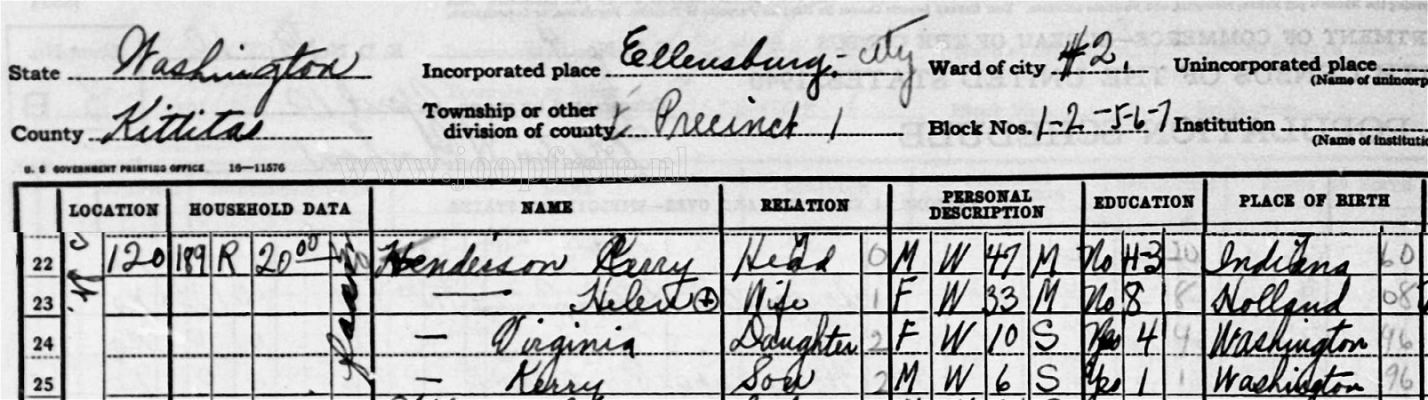 State Washington Incorporated place Ellensburg city Ward of city #2 Unincorporated place
(Name of unincorp
County Kittitas Township or other division of county Precinct 1 Block Nos. 1-2-5-6-7 Institution
(Name of instituti
U. S. GOVERNMENT PRINTING OFFICE 16—11576
www.joopfresie.nl
LOCATION HOUSEHOLD DATA NAME RELATION PERSONAL DESCRIPTION EDUCATION PLACE OF BIRTH
22 120 189 R 20 00 Henderson Kerry Head 0 M W 47 M No H-3 30 Indiana 60
23 — Helen Wife 1 F W 33 M No 8 8 Holland 08
24 — Virginia Daughter 2 F W 10 S Yes 4 4 Washington 96
25 — Kerry Son 2 M W 6 S Yes 1 1 Washington 96